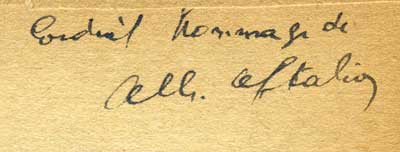 Cordial hommage de
Alb. Aftalion